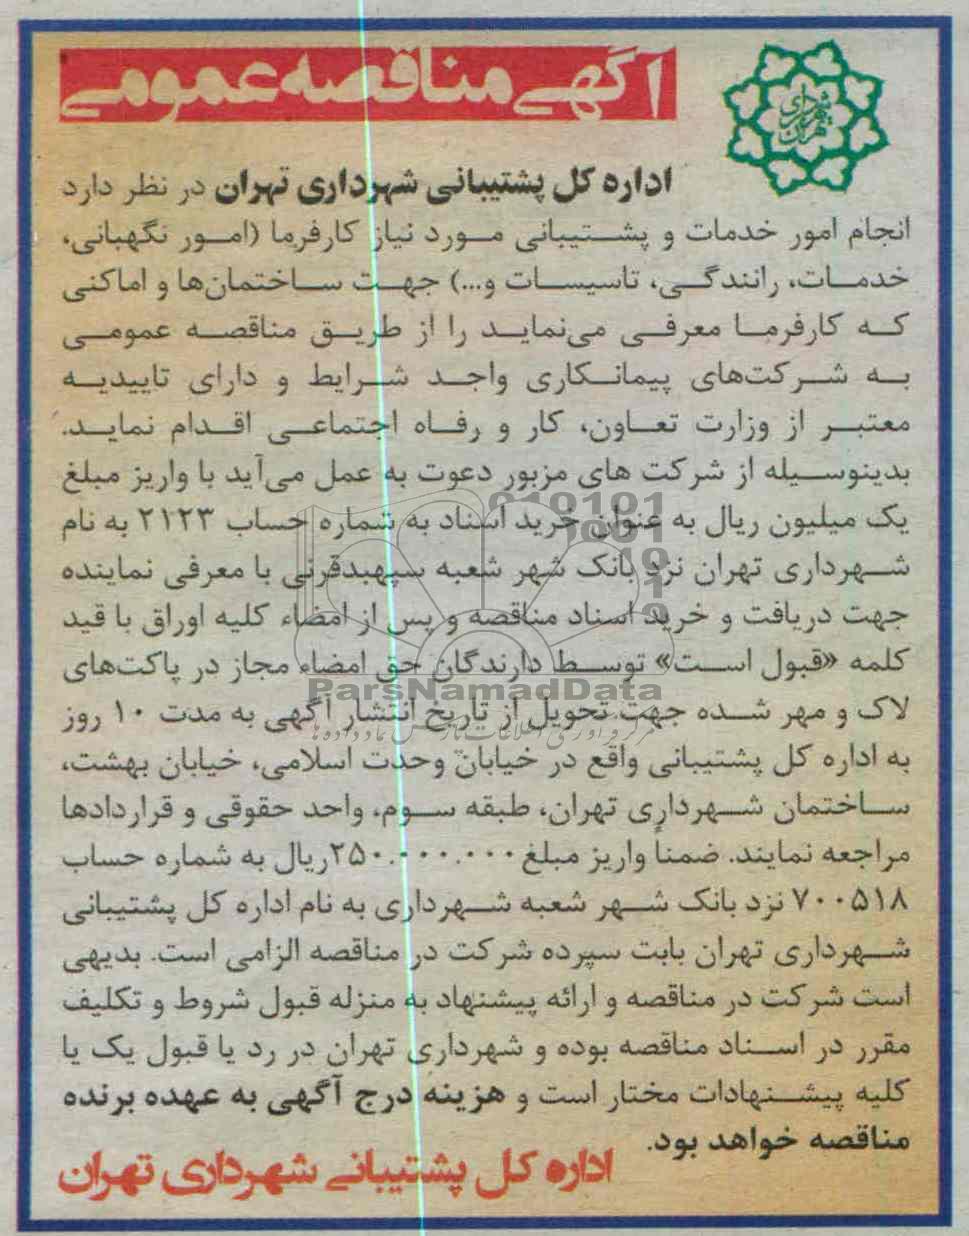 آگهی مناقصه عمومی
شهرداری تهران
اداره کل پشتیبانی شهرداری تهران در نظر دارد
انجام امور خدمات و پشتیبانی مورد نیاز کارفرما (امور نگهبانی،
خدمات، رانندگی، تاسیسات و...) جهت ساختمان‌ها و اماکنی
که کارفرما معرفی می‌نماید را از طریق مناقصه عمومی
به شرکت‌های پیمانکاری واجد شرایط و دارای تاییدیه
معتبر از وزارت تعاون، کار و رفاه اجتماعی اقدام نماید.
بدینوسیله از شرکت های مزبور دعوت به عمل می‌آید با واریز مبلغ
یک میلیون ریال به عنوان خرید اسناد به شماره حساب ۲۱۲۳ به نام
شهرداری تهران نزد بانک شهر شعبه سپهبدقرنی با معرفی نماینده
جهت دریافت و خرید اسناد مناقصه و پس از امضاء کلیه اوراق با قید
کلمه «قبول است» توسط دارندگان حق امضاء مجاز در پاکت‌های
لاک و مهر شده جهت تحویل از تاریخ انتشار آگهی به مدت ۱۰ روز
به اداره کل پشتیبانی واقع در خیابان وحدت اسلامی، خیابان بهشت،
ساختمان شهرداری تهران، طبقه سوم، واحد حقوقی و قراردادها
مراجعه نمایند. ضمناً واریز مبلغ ۲۵۰.۰۰۰.۰۰۰ریال به شماره حساب
۷۰۰۵۱۸ نزد بانک شهر شعبه شهرداری به نام اداره کل پشتیبانی
شهرداری تهران بابت سپرده شرکت در مناقصه الزامی است. بدیهی
است شرکت در مناقصه و ارائه پیشنهاد به منزله قبول شروط و تکلیف
مقرر در اسناد مناقصه بوده و شهرداری تهران در رد یا قبول یک یا
کلیه پیشنهادات مختار است و هزینه درج آگهی به عهده برنده
مناقصه خواهد بود.
اداره کل پشتیبانی شهرداری تهران
ParsNamadData